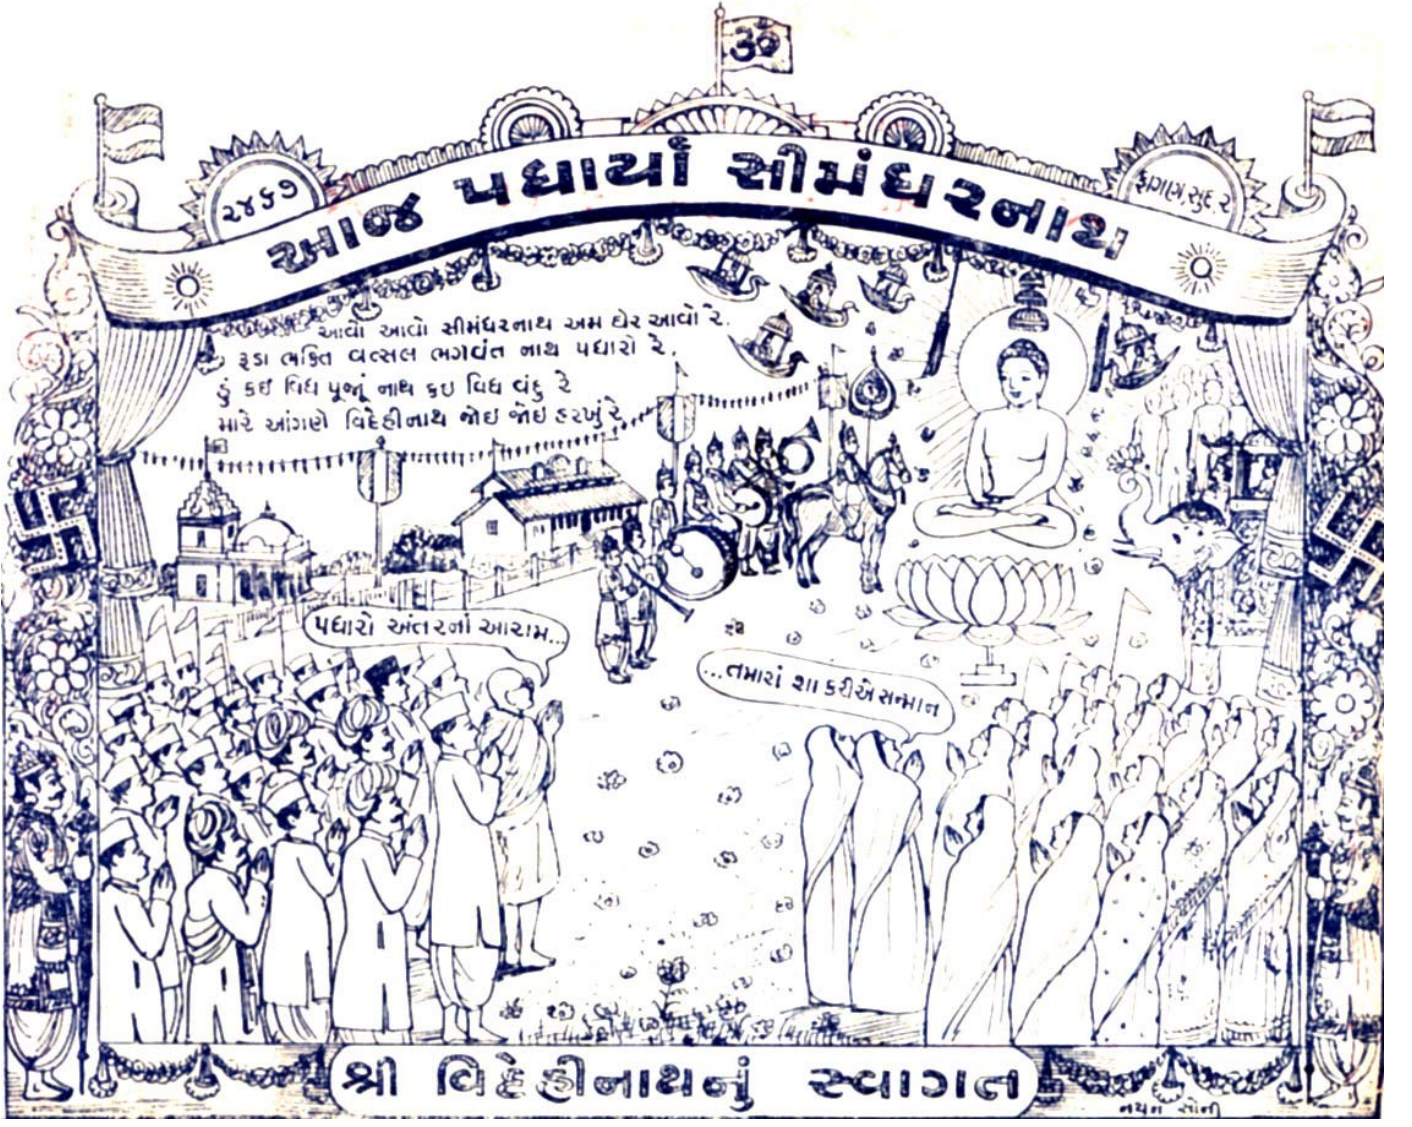 ॐ
૨૪૬૭
ફાગણ સુદ ૨
આજ પધાર્યા સીમંધરનાથ
આવો આવો સીમંધરનાથ અમ ઘેર આવો રે.
રૂડા ભક્તિ વત્સલ ભગવંત નાથ પધારો રે,
હું કઇ વિધ પૂજું નાથ કઇ વિધ વંદુ રે
મારે આંગણે વિદેહીનાથ જોઇ જોઇ હરખું રે
પધારો અંતરનાં આરામ...
...તમારાં શા કરીએ સન્માન
શ્રી વિદેહીનાથનું સ્વાગત
નયન સોની